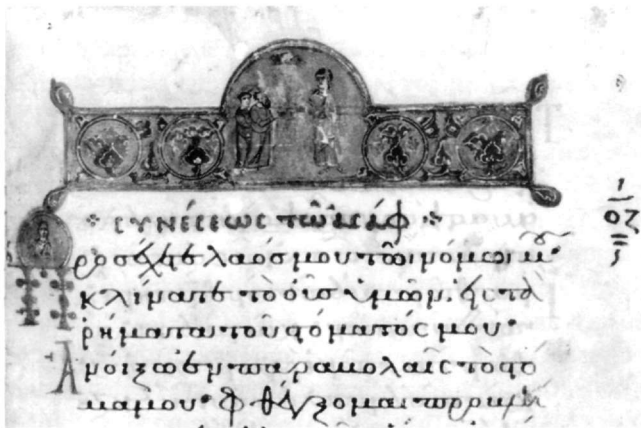 ΣΥΝΕΣΕΩΣ ΤΩ ΑΣΑΦ
οζ
Προσέχετε λαός μου τῶι νόμωι μου·
κλίνατε τὸ οὖς ὑμῶν εἰς τὰ
ρήματα τοῦ στόματός μου·
Ἀνοίξω ἐν παραβολαῖς τὸ στό
μα μου· φθέγξομαι προβλή